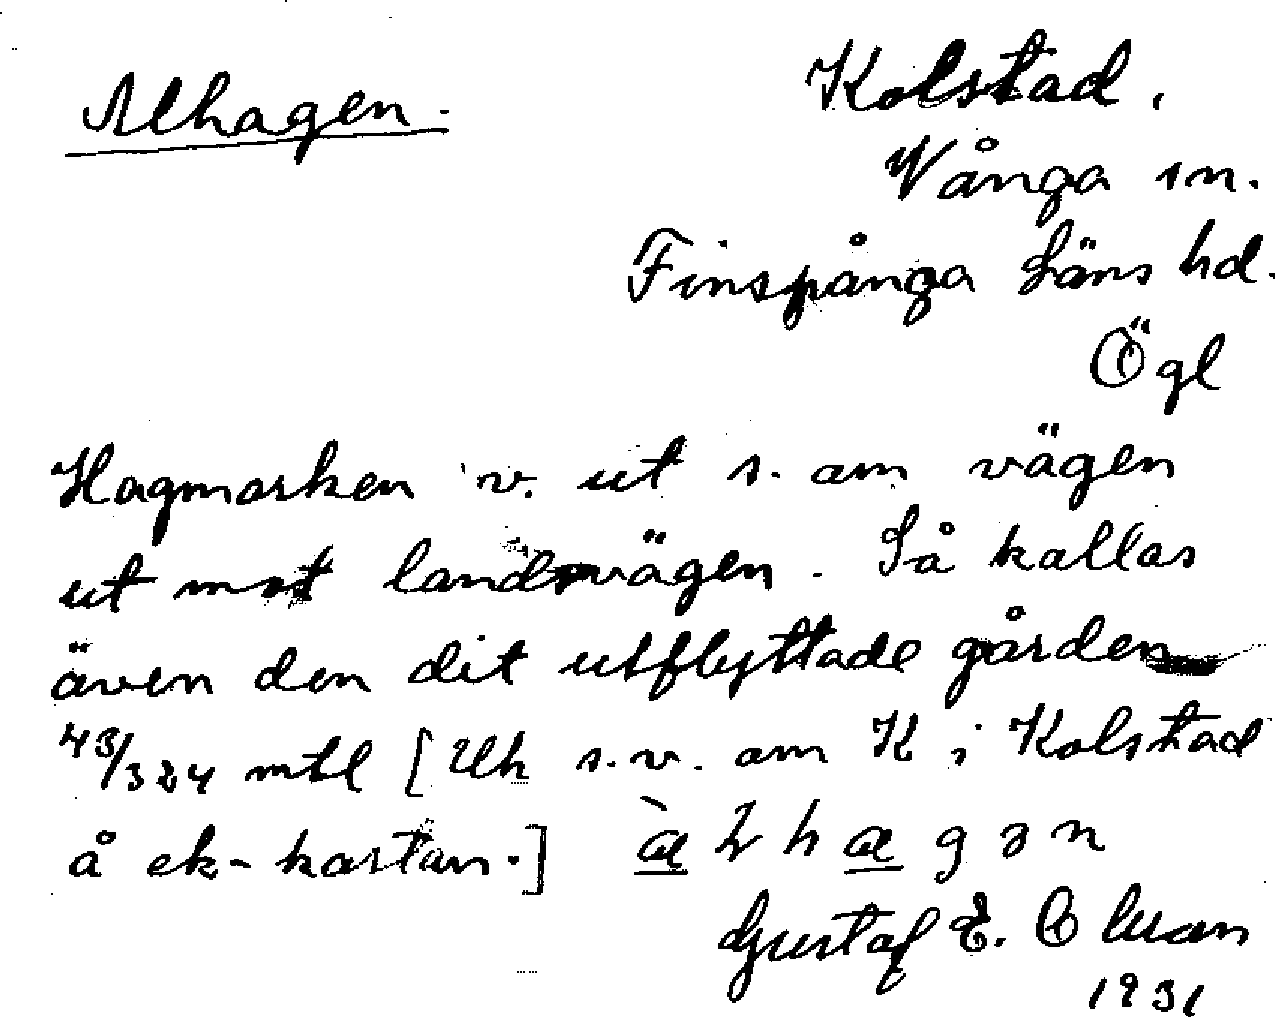 Alhagen.
Kolstad.
Vånga sn.
Finspånga läns hd.
Ögl
Hagmarken v. ut s. om vägen
ut mot landsvägen. Så kallas
även den dit utflyttade gården
43/324 mtl [Uh s.v. om K i Kolstad
å ek-kartan.] àlhagən
Gustaf E. Olsson
1931